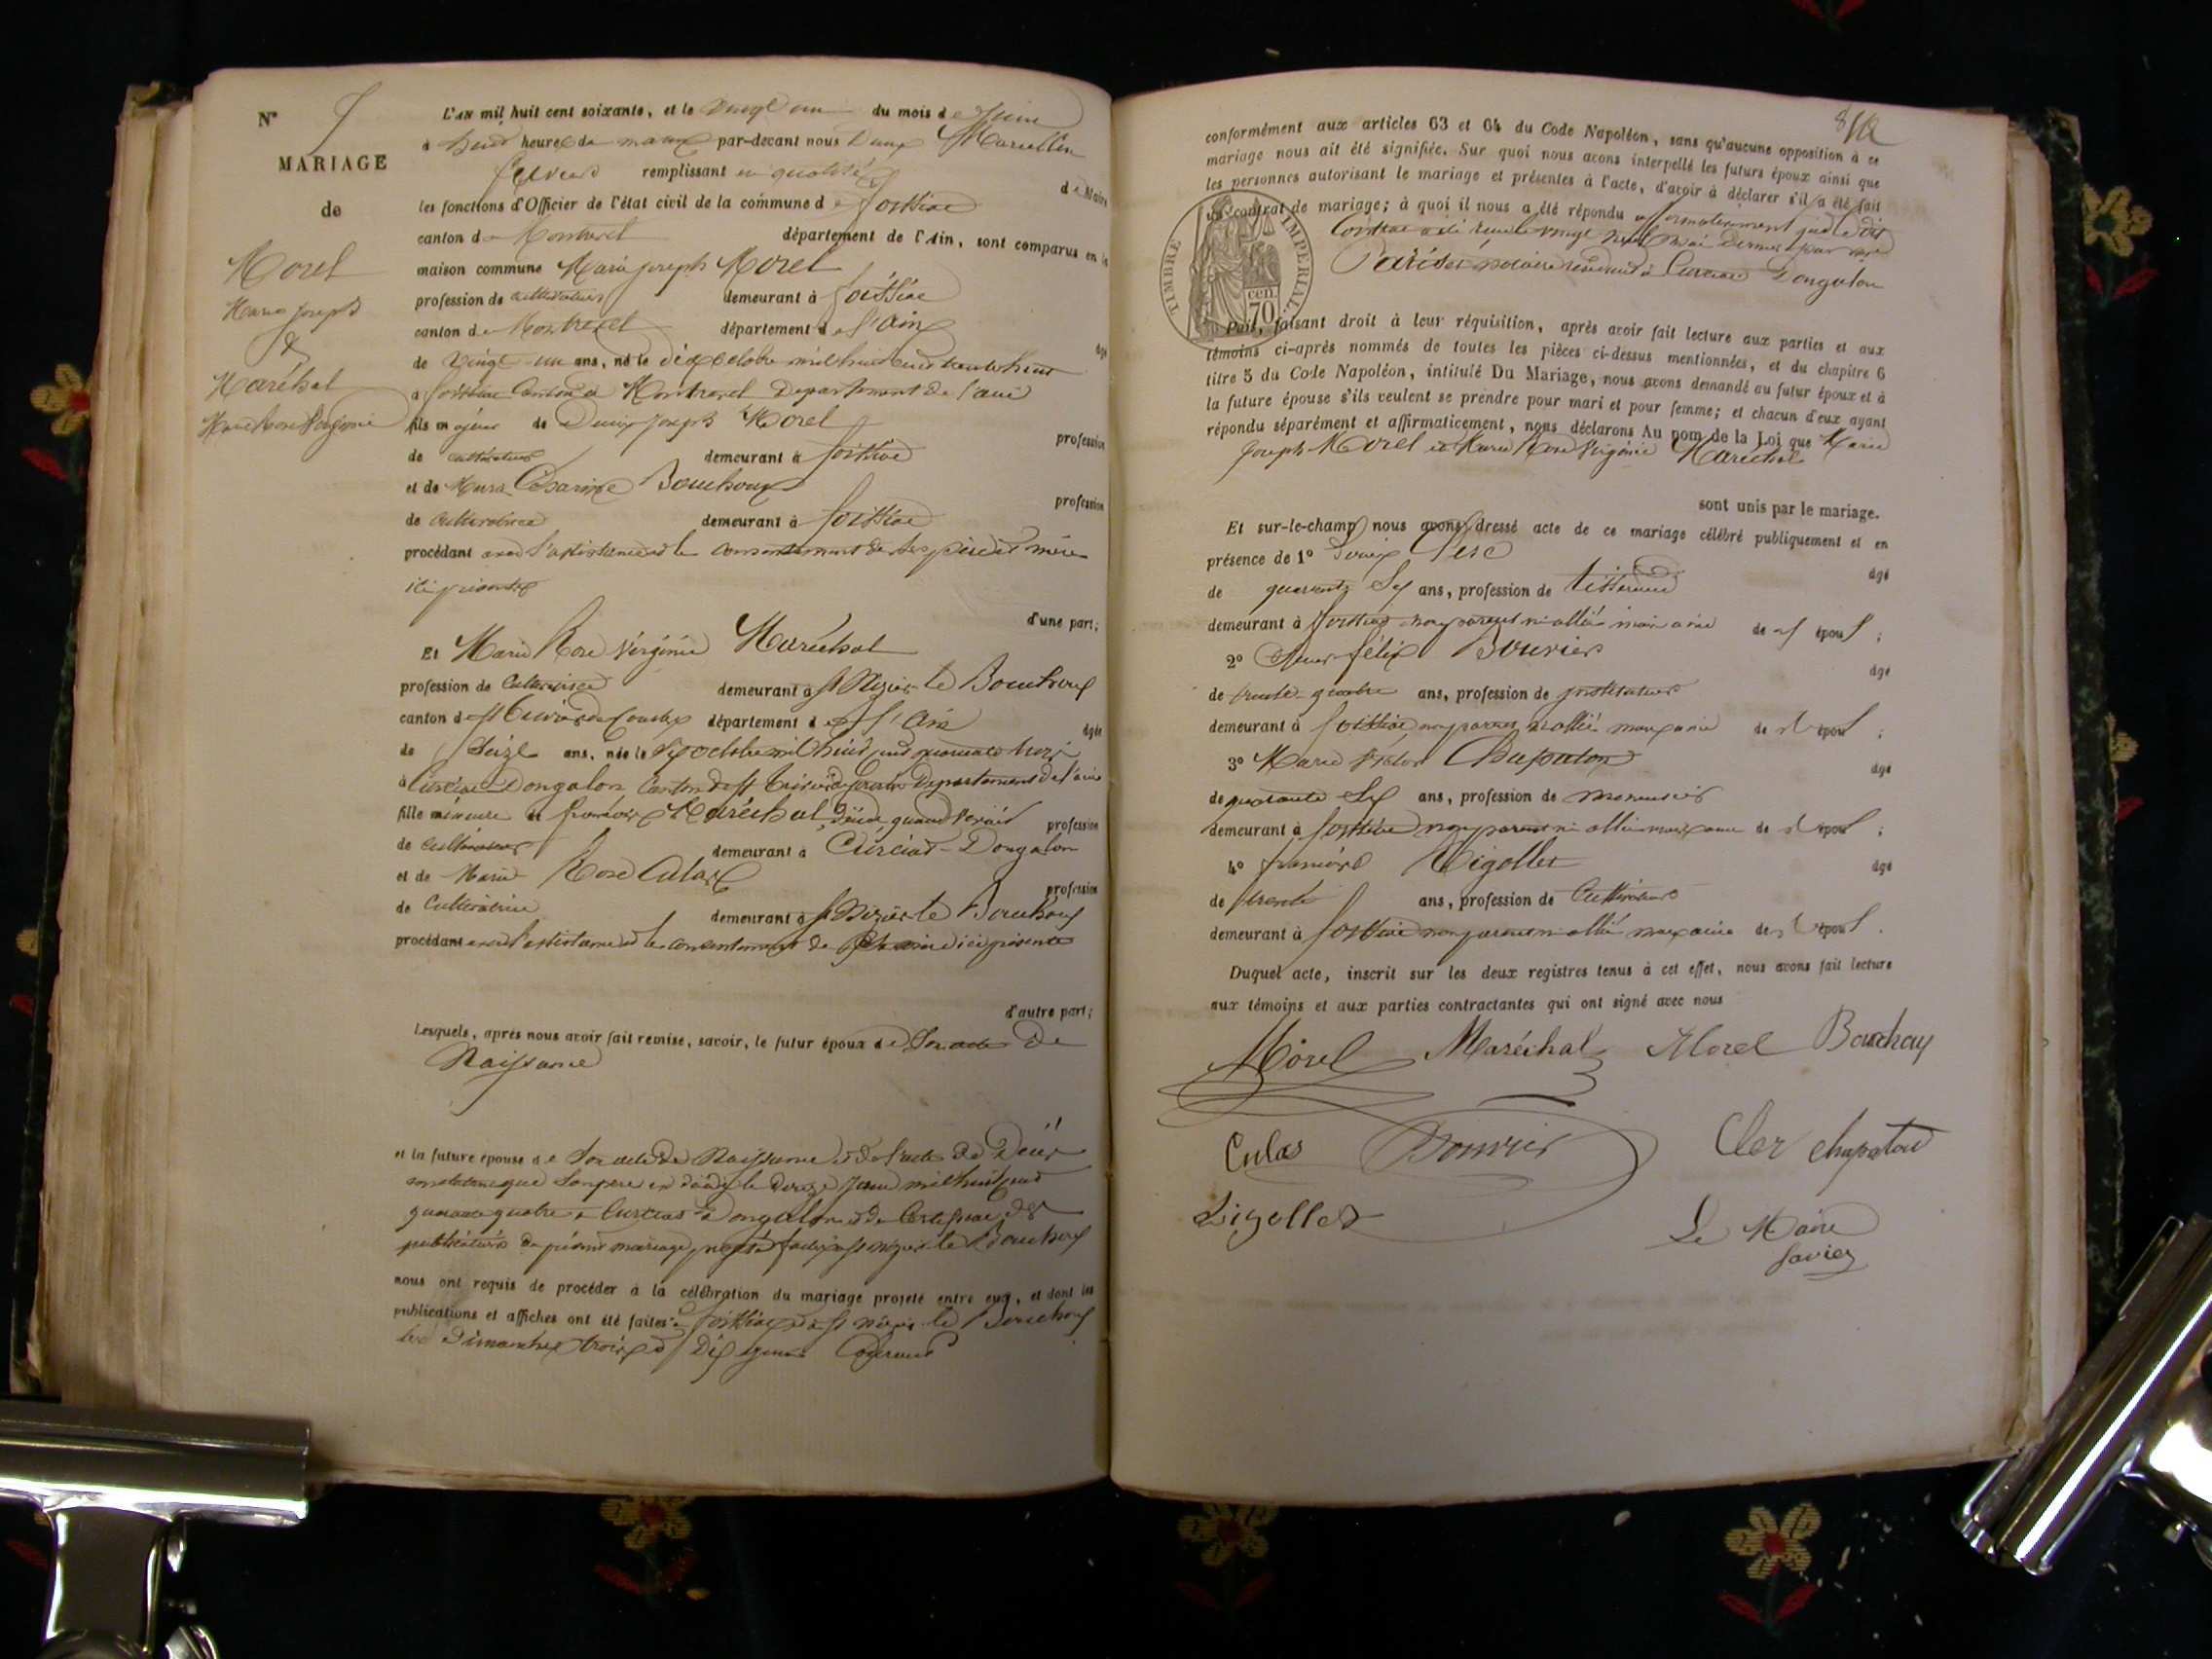 N°
MARIAGE
de
Morel
Marie Joseph
&
Maréchal
Marie Rose Virginie
L'AN mil huit cent soixante, et le vingt un du mois de Juin
à huit heures du matin par-devant nous Marcellin
remplissant en qualité de Maire
les fonctions d'Officier de l'état civil de la commune de foissiat
canton de Montrevel département de l'Ain, sont comparus en la
maison commune Marie Joseph Morel
profession de cultivateur demeurant à foissiat
canton de Montrevel département de l'Ain âgé
de vingt un ans, né le octobre mil huit cent trente huit
à foissiat Canton de Montrevel Departement de l'ain
fils majeur de Denis Joseph Morel profession
de cultivateur demeurant à foissiat
et de Marie Césarine Bouchoux profession
de cultivatrice demeurant à foissiat
procédant avec l'assistance et le consentement de ses père et mère
ici présents
d'une part;
Et Marie Rose Virginie Maréchal
profession de Cultivatrice demeurant à St Nizier le Bouchoux
canton de St Trivier de Courtes département de l'Ain âgée
de Seize ans, née le octobre mil huit cent quarante trois
à Curciat Dongalon Canton de St Trivier de Courtes Departement de l'ain
fille mineure de françois Maréchal, quand vivait profession
de cultivateur demeurant à Curciat-Dongalon
et de Marie Rose Culas profession
de Cultivatrice demeurant à St Nizier le Bouchoux
procédant avec l'assistance et le consentement de sa mère ici présente
d'autre part;
Lesquels, après nous avoir fait remise, savoir, le futur époux de Son acte de
Naissance
et la future épouse de Son acte de Naissance et de l'acte de Décès
constatant que Son père est décédé le Juin mil huit cent
quarante quatre à Curciat Dongalon et de Certificat des
publications du présent mariage St Nizier le Bouchoux
nous ont requis de procéder à la célébration du mariage projeté entre eux, et dont les
publications et affiches ont été faites à foissiat et à St Nizier le Bouchoux
les dimanches trois et Dix Juin Courant
conformément aux articles 63 et 64 du Code Napoléon, sans qu'aucune opposition à ce
mariage nous ait été signifiée. Sur quoi nous avons interpellé les futurs époux ainsi que
les personnes autorisant le mariage et présentes à l'acte, d'avoir à déclarer s'il a été fait
un contrat de mariage; à quoi il nous a été répondu affirmativement que le dit
Contrat a été reçu le vingt neuf Mai dernier par me
notaire résidant à Curciat Dongalon
TIMBRE IMPERIAL
cen. 70
Puis, faisant droit à leur réquisition, après avoir fait lecture aux parties et aux
témoins ci-après nommés de toutes les pièces ci-dessus mentionnées, et du chapitre 6
titre 5 du Code Napoléon, intitulé Du Mariage, nous avons demandé au futur époux et à
la future épouse s'ils veulent se prendre pour mari et pour femme; et chacun d'eux ayant
répondu séparément et affirmativement, nous déclarons Au nom de la Loi que Marie
Joseph Morel et Marie Rose Virginie Maréchal
sont unis par le mariage.
Et sur-le-champ nous avons dressé acte de ce mariage célébré publiquement et en
présence de 1° âgé
de quarante Six ans, profession de tisserand
demeurant à foissiat non parent ni allié mais ami des époux;
2° félix Bouvier âgé
de trente-quatre ans, profession de instituteur
demeurant à foissiat non parent ni allié mais ami des époux;
3° Marie Victor Chapaton âgé
de quarante Six ans, profession de menuisier
demeurant à foissiat non parent ni allié mais ami des époux;
4° françois Rigollet âgé
de trente ans, profession de Cultivateur
demeurant à foissiat non parent ni allié mais ami des époux.
Duquel acte, inscrit sur les deux registres tenus à cet effet, nous avons fait lecture
aux témoins et aux parties contractantes qui ont signé avec nous
Morel Maréchal Morel Bouchoux
Culas Bouvier Cler chapaton
Rigollet Le Maire